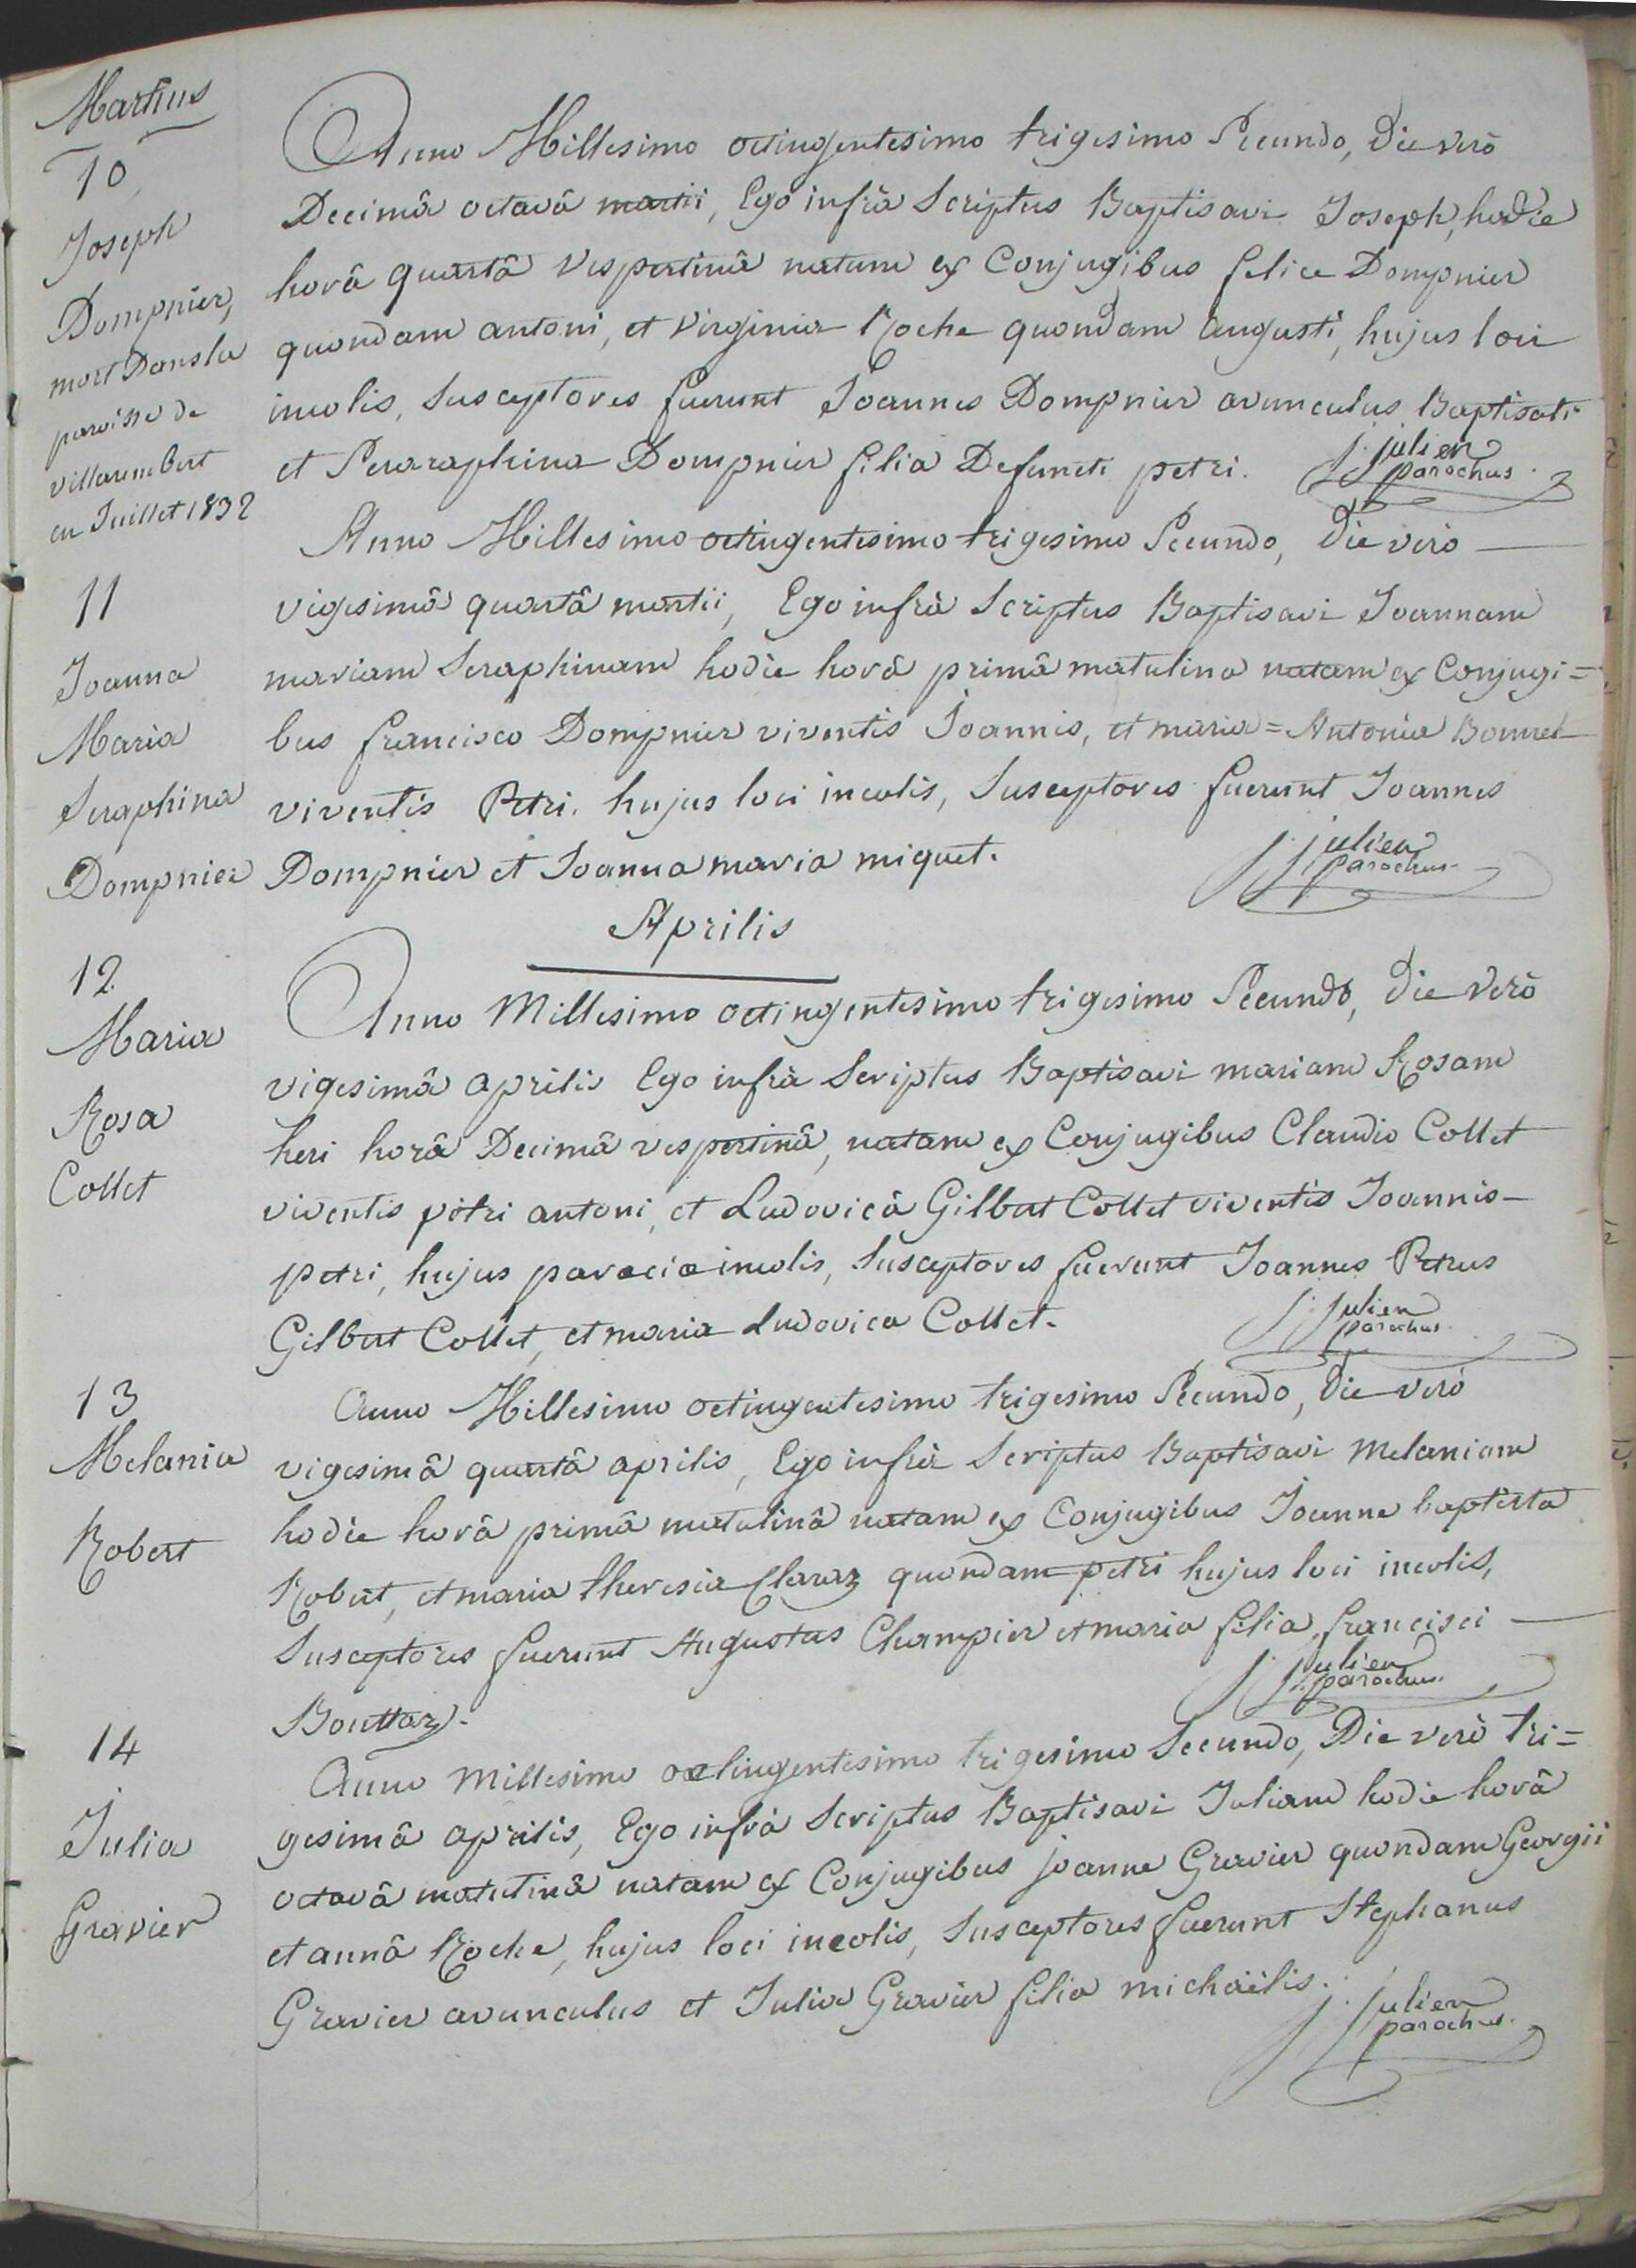 Martius
10
Joseph
Dompnier,
mort Dans la
paroisse de
villarembert
en Juillet 1832
Anno Millesimo octingentesimo trigesimo Secundo, Die verò
Decimâ octavâ martii, Ego infrà Scriptus Baptisavi Joseph, hodie
horâ quartâ vespertinâ natum ex Conjugibus felice Dompnier
quondam antoni, et Virginia Roche quondam augusti, hujus loci
incolis, Susceptores fuerunt Joannes Dompnier avunculus Baptisati
et Seraraphina Dompnier filia Defuncti petri.
j. julien
parochus.
11
Joanna
Maria
Seraphina
Dompnier
Anno Millesimo octingentesimo trigesimo Secundo, Die verò
vigesimâ quartâ martii, Ego infrà Scriptus Baptisavi Joannam
mariam Seraphinam hodie horâ primâ matutina natam ex Conjugi=
bus francisco Dompnier viventis Joannis, et maria=Antonia Bonnel
viventis Petri. hujus loci incolis, Susceptores fuerunt Joannes
Dompnier et Joanna maria miquet.
j. julien
parochus.
Aprilis
12.
Maria
Rosa
Collet
Anno Millesimo octingentesimo trigesimo Secundo, Die Verò
vigesimâ aprilis Ego infrà Scriptus Baptisavi mariam Rosam
heri horâ Decimâ vespertinâ, natam ex Conjugibus Claudio Collet
viventis petri antoni, et Ludovicâ Gilbert Collet viventis Joannis-
petri, hujus parociæ incolis, Susceptores fuerunt Joannes Petrus
Gilbert Collet, et maria Ludovica Collet.
j. julien
parochus.
13
Melania
Robert
Anno Millesimo octingentesimo trigesimo Secundo, Die verò
vigesimâ quartâ aprilis, Ego infrà Scriptus Baptisavi Melaniam
hodie horâ primâ matutinâ natam ex Conjugibus Joanne baptista
Robert, et maria theresia Claraz quondam petri hujus loci incolis,
Susceptores fuerunt Augustus Champier et maria filia francisci
Bouttaz.
j. julien
parochus.
14
Julia
Gravier
Anno millesimo octingentesimo trigesimo Secundo, Die verò tri=
gesimâ aprilis, Ego infrà Scriptus Baptisavi Juliam hodie horâ
octavâ matutinâ natam ex Conjugibus joanne Gravier quondam Georgii
et annâ Roche, hujus loci incolis, Susceptores fuerunt Stephanus
Gravier avunculus et Julia Gravier filia michaëlis.
j. julien
parochus.